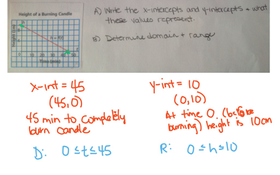 Height of a Burning Candle
A) Write the x-intercepts and y-intercepts + what
these values represent.
B) Determine domain + range
x-int = 45
(45,0)
45 min to completely
burn candle
D: 0 ≤ t ≤ 45
y-int = 10
(0,10)
At time 0 (before
burning) height is 10cm
R: 0 ≤ h ≤ 10